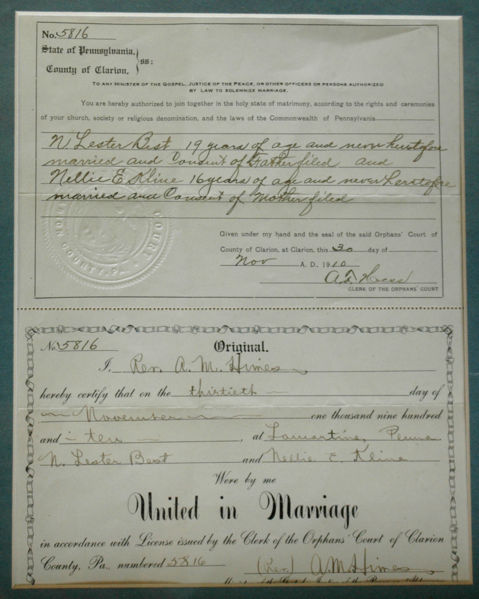 No. 5816
State of Pennsylvania, } ss:
County of Clarion.
TO ANY MINISTER OF THE GOSPEL, JUSTICE OF THE PEACE, OR OTHER OFFICERS OR PERSONS AUTHORIZED
BY LAW TO SOLEMNIZE MARRIAGE.
You are hereby authorized to join together in the holy state of matrimony, according to the rights and ceremonies
of your church, society or religious denomination, and the laws of the Commonwealth of Pennsylvania
N. Lester Best 19 years of age and never heretofore
married and Consent of Father filed and
Nellie E. Kline 16 years of age and never heretofore
married and Consent of Mother filed
Given under my hand and the seal of the said Orphans' Court of
County of Clarion, at Clarion, this 30 day of
Nov A. D. 1910
CLERK OF THE ORPHANS' COURT
COURT
COUNTY, PA.
No. 5816 Original.
I, Rev. A. M. Himes
hereby certify that on the thirtieth day of
November one thousand nine hundred
and ten, at Lamartine, Penna
N. Lester Best and Nellie E. Kline
Were by me
United in Marriage
in accordance with License issued by the Clerk of the Orphans' Court of Clarion
County, Pa., numbered 5816 (Rev.) A. M. Himes